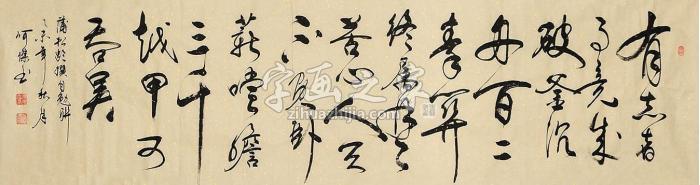 有志者
事竟成
破釜沉
舟百二
秦關
終屬楚
苦心人天
不負卧
薪嚐膽
三千
越甲可
吞吴
蒲松齡撰自勉聯
乙未年秋月
字画之家
zihuazhijia.com